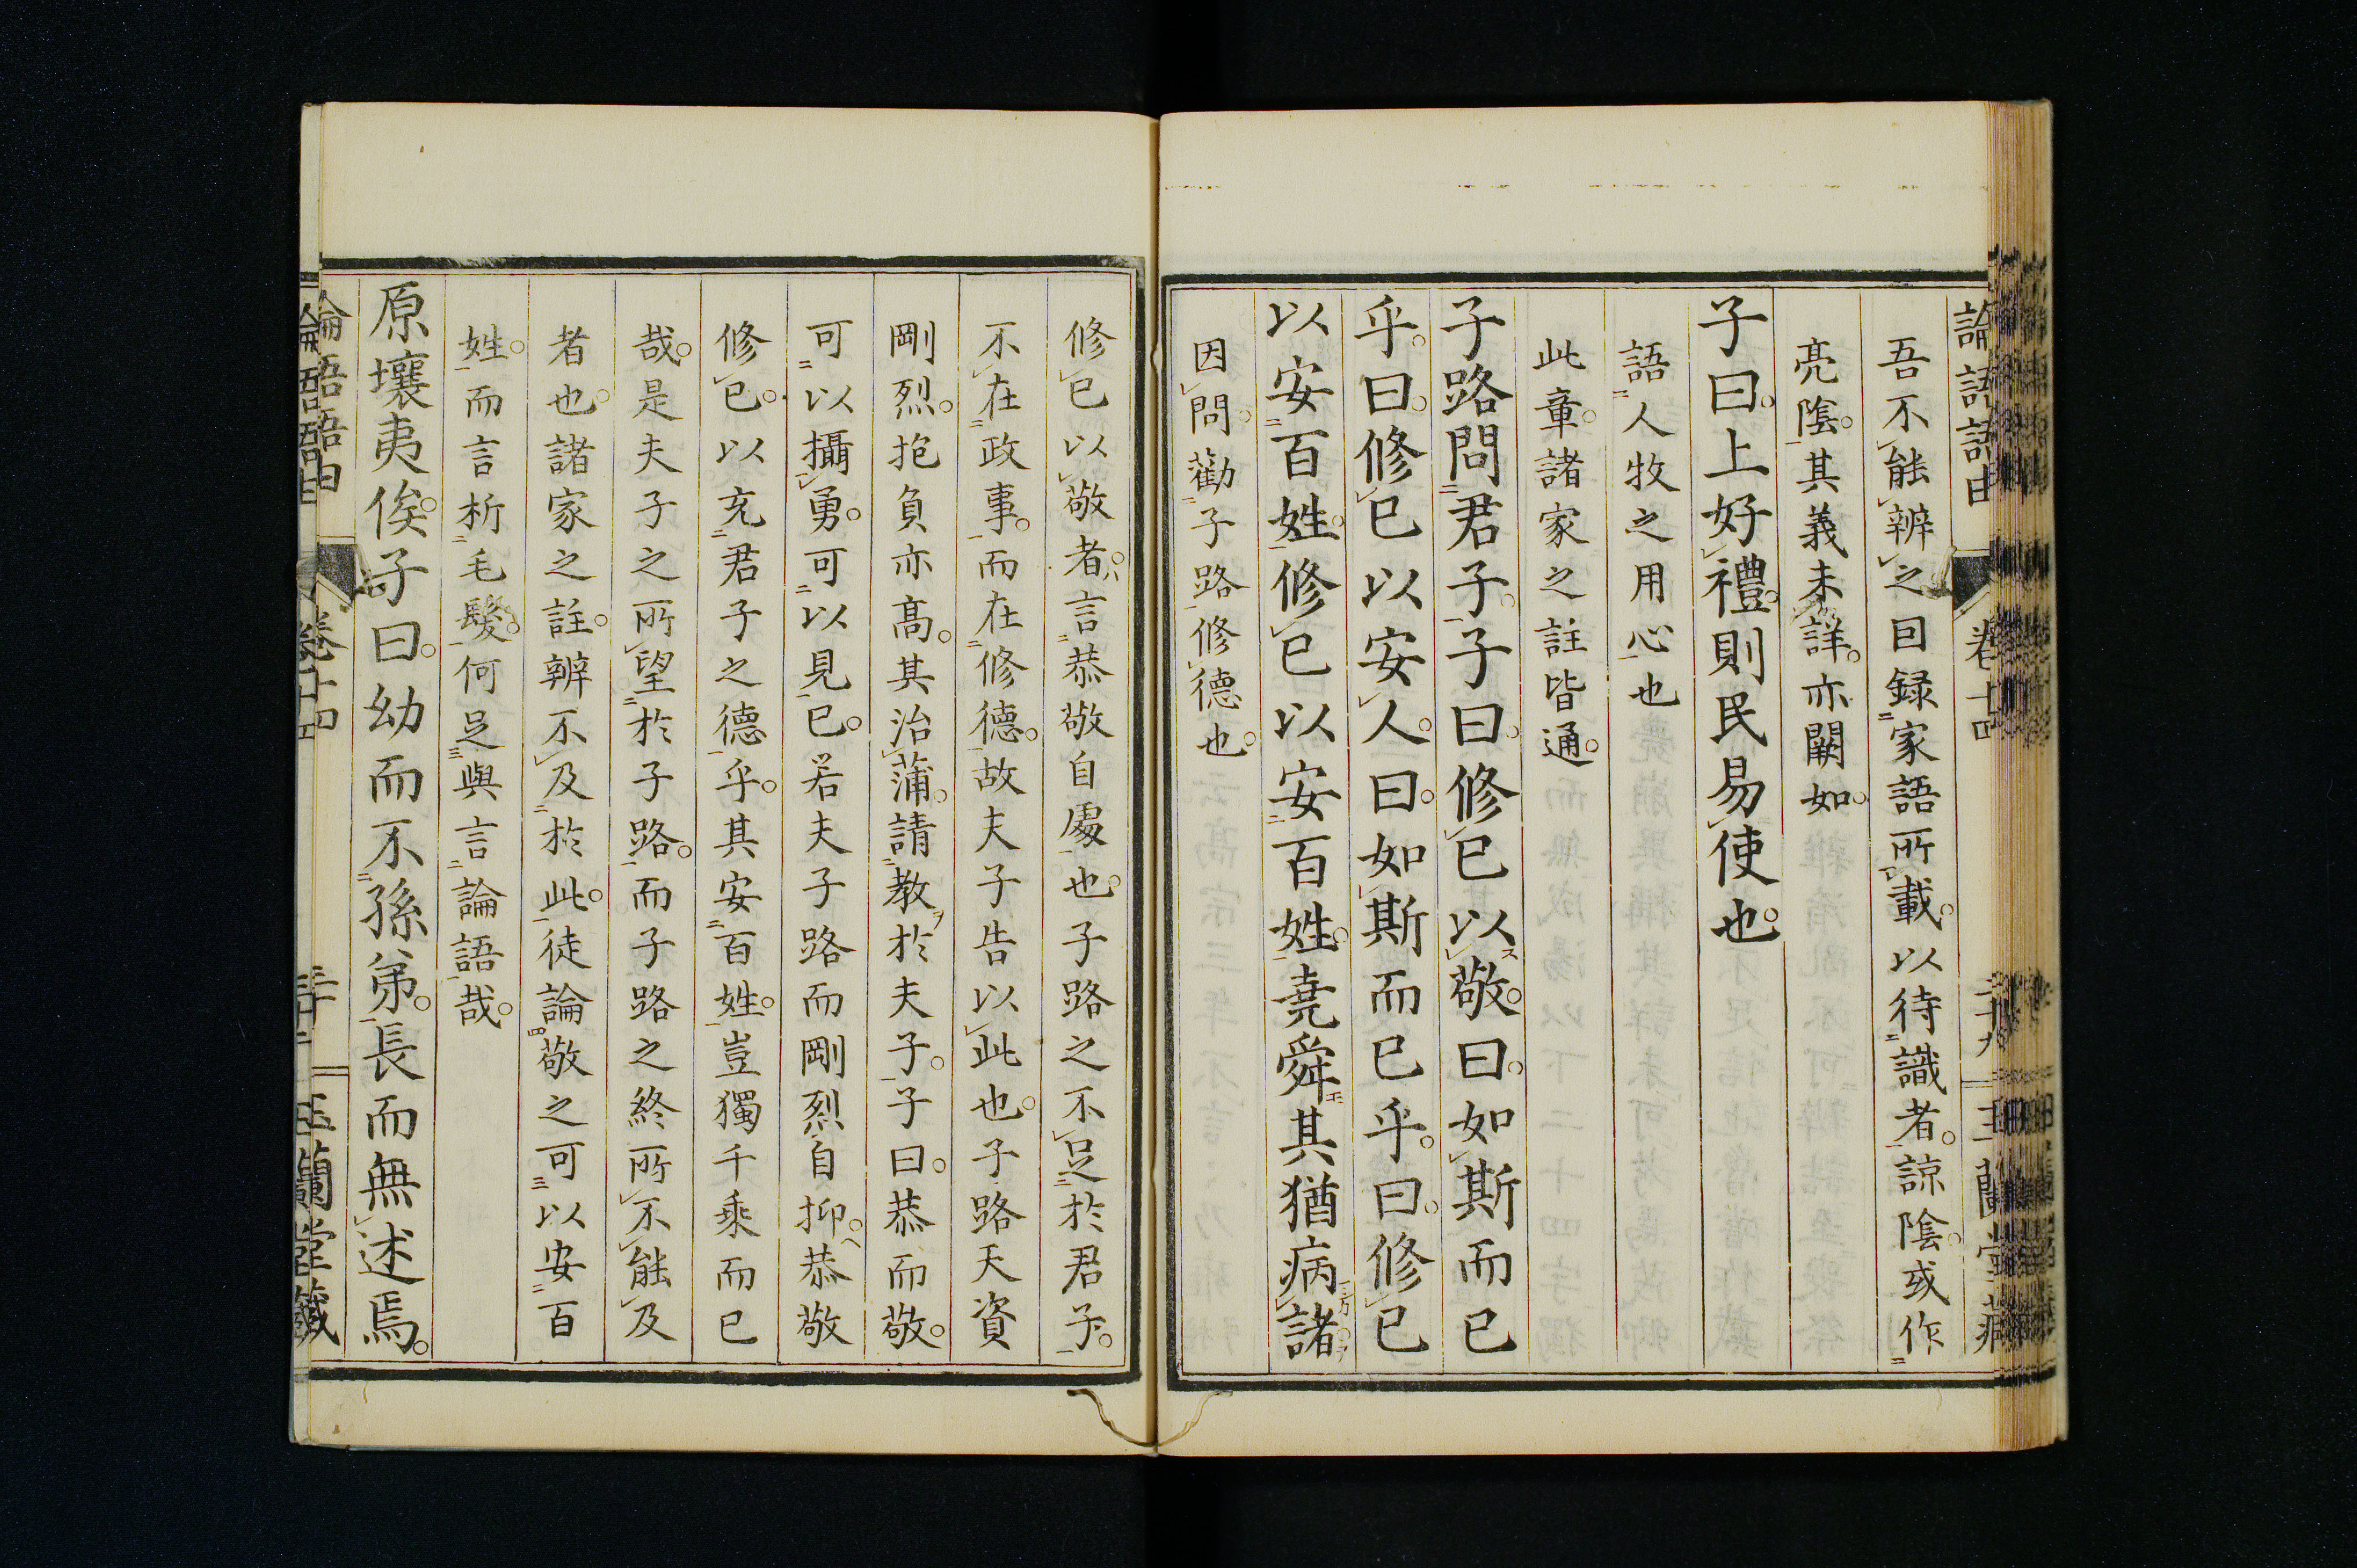 論語語由 卷十四
吾不能辨之因錄家語所載以待識者諒陰或作
亮陰其義未詳亦闕如
子曰上好禮則民易使也
語人牧之用心也
此章諸家之註皆通
子路問君子子曰修已以敬曰如斯而已
乎曰修已以安人曰如斯而已乎曰修已
以安百姓修已以安百姓堯舜其猶病諸
因問勸子路修德也
修已以敬者言恭敬自處也子路之不足於君子
不在政事而在修德故夫子告以此也子路天資
剛烈抱負亦高其治蒲請教於夫子子曰恭而敬
可以攝勇可以見已若夫子路而剛烈自抑恭敬
修已以充君子之德乎其安百姓豈獨千乘而已
哉是夫子之所望於子路而子路之終所不能及
者也諸家之註辨不及於此徒論敬之可以安百
姓而言析毛髮何足與言論語哉
原壤夷俟子曰幼而不孫弟長而無述焉
論語語由 卷十四 玉蘭堂藏